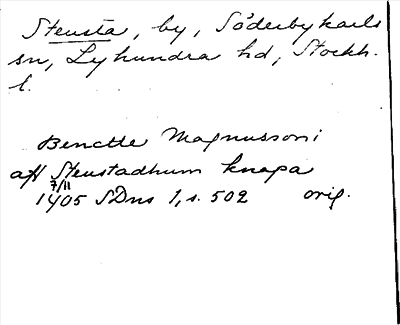 Stensta, by, Söderbykarls
sn, Lyhundra hd, Stockh.
l.
Benctte Magnussoni
aff Stenstadhum knapa
7/11
1405 SDns 1, s. 502 orig.